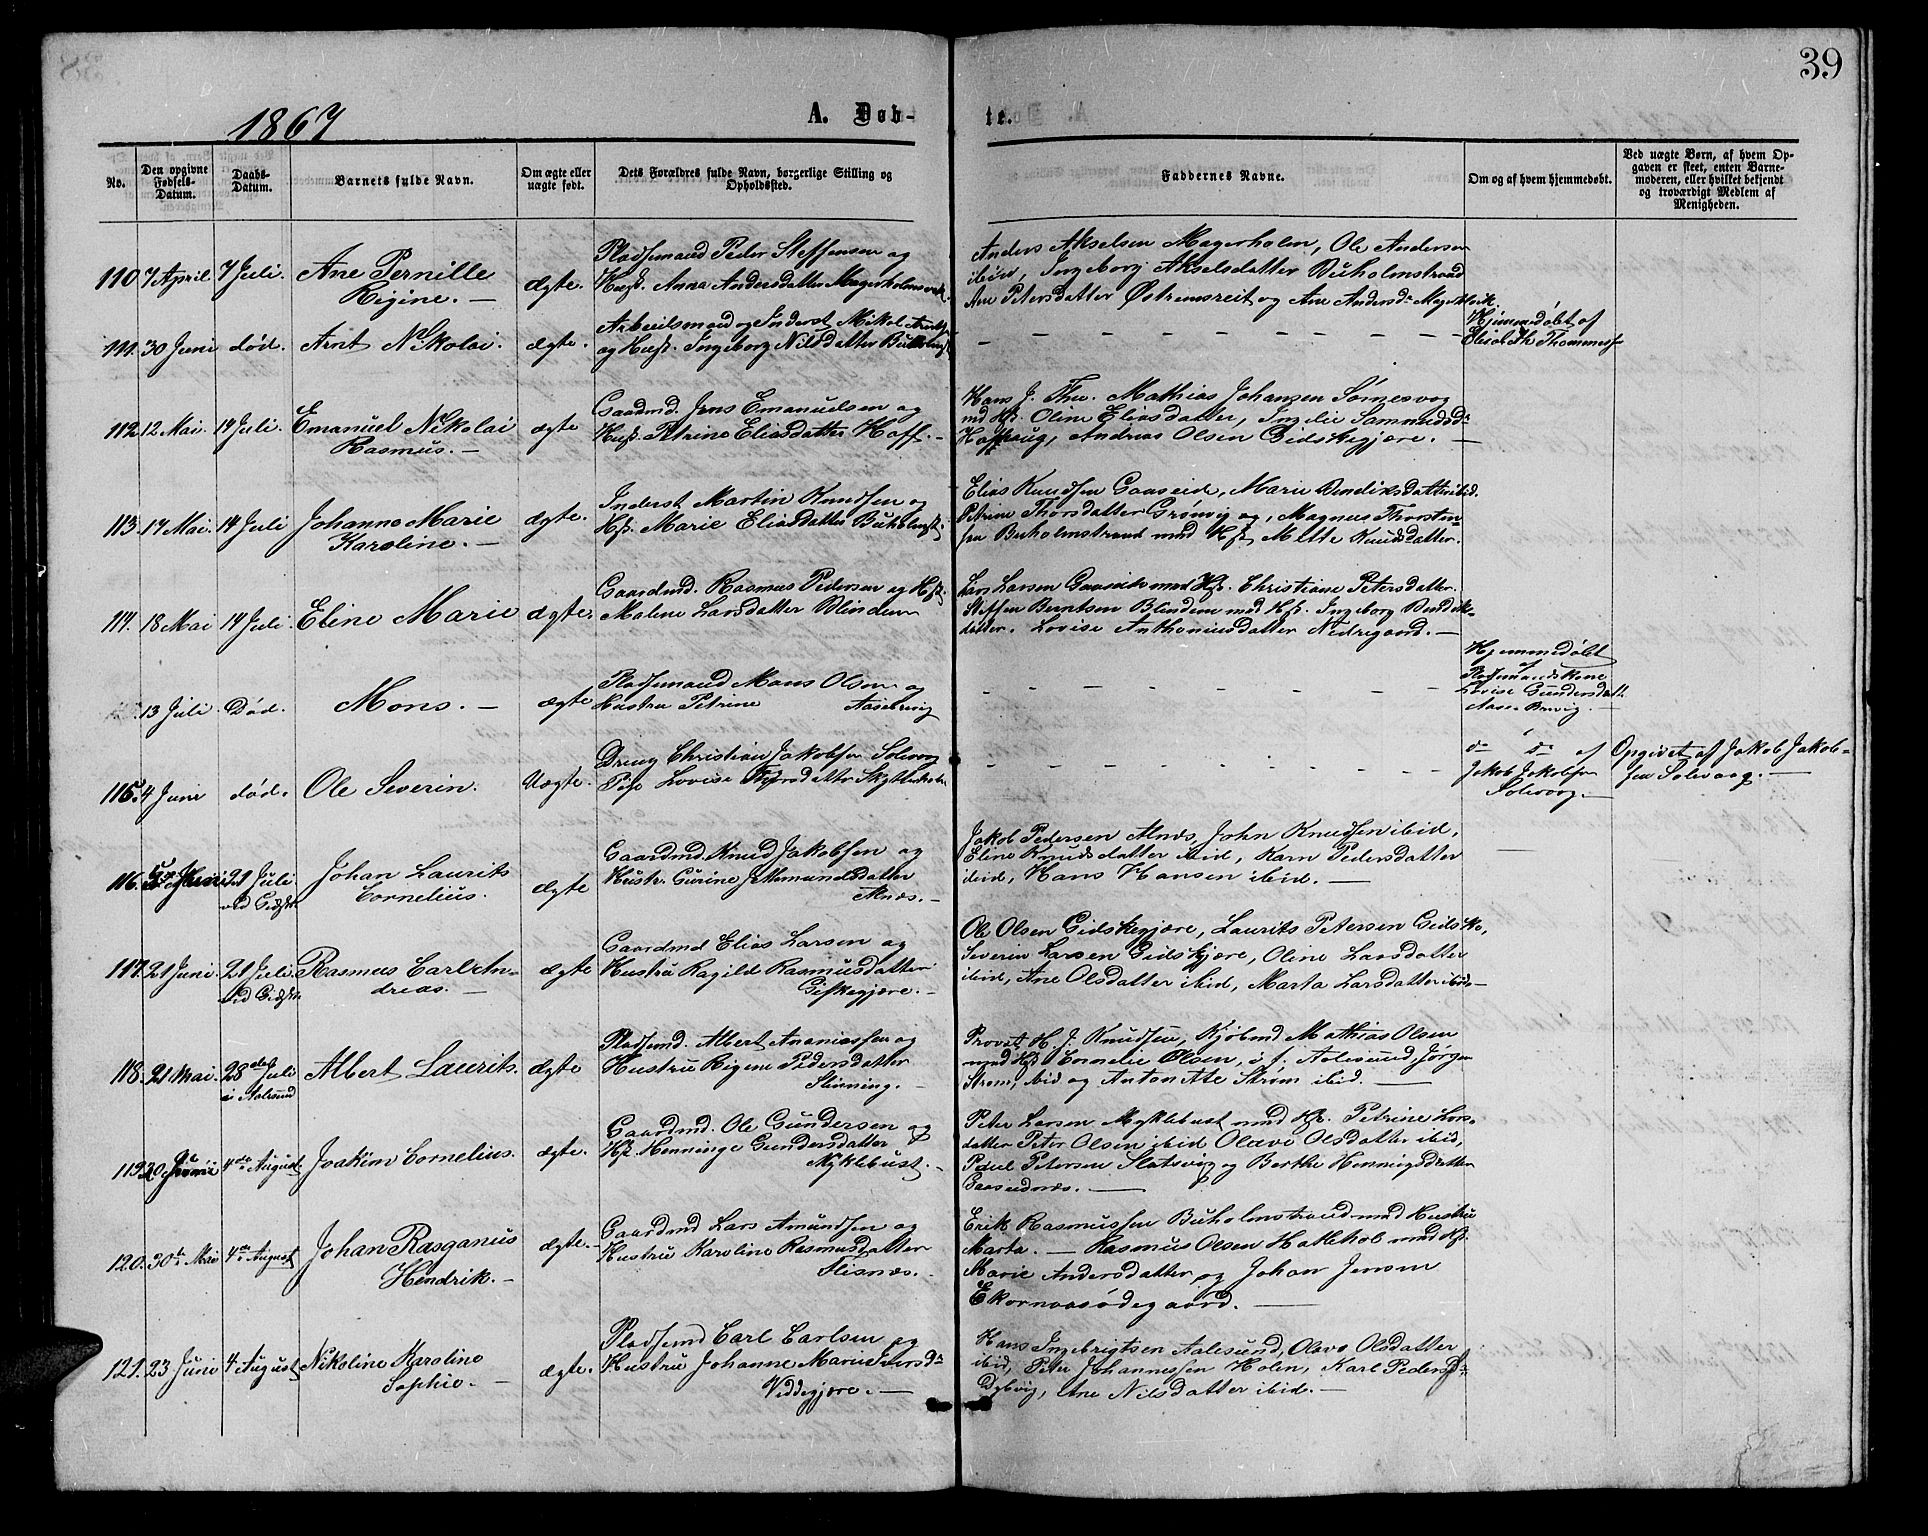 39
1867
A. Døb-
te.
No.
Den opgivne Fødsels-Datum.
Daabs-Datum.
Barnets fulde Navn.
Om ægte eller uægte født.
Dets Forældres fulde Navn, borgerlige Stilling og Opholdssted.
Faddernes Navne.
Om og af hvem hjemmedøbt.
Ved uægte Børn, af hvem Opgaven er skeet, enten Barnemoderen, eller hvilket bekjendt og troværdigt Medlem af Menigheden.
110 7 April. 7 Juli. Ane Pernille
Regine. —
ægte.
Pladsemand Peder Steffensen og
Hust. Anna Andersdatter Magerholmsvik.
Anders Akselsen Magerholm, Ole Andersen
ibid, Ingeborg Akselsdatter Buholmstrand
Ane Petersdatter Østremsreit og Ane Andersd. Magerh.vik.
111. 30 Juni død. Arnt Nikolai. ægte.
Arbeidsmand og Inderst Mikal
og Hust. Ingeborg Nilsdatter
Hjemmedøbt af
Elisabeth Thommesd.
112 12 Mai. 14 Juli. Emanuel Nikolai
Rasmus. —
ægte
Gaardmd. Jens Emanuelsen og
Hust. Petrine Eliasdatter Hoff. —
Hans J. Thu. Mathias Johansen Sørnesvog
md Hst. Oline Eliasdatter, Ingelie Sammundsdr
Hoffhaug, Andreas Olsen Gidskegjære. —
113. 17 Mai. 14 Juli Johanne Marie
Karoline. —
ægte.
Inderst Martin Knudsen og
Hst. Marie Eliasdatter Buholmst.
Elias Knudsen Gaaseide, Marie Bendiksdatter ibid.
Petrine Thorsdatter Grønvig og, Magnus Thorsten-
sen Buholmstrand med Hst. Mette Knudsdatter.
114. 18 Mai 14 Juli. Eline Marie ægte.
Gaardmd. Rasmus Pedersen og Hst.
Malene Larsdatter Blindem
Lars Larsen Gaaseide med Hst. Christiane Petersdatter.
Steffen Berntsen Blindem md. Hst. Ingeborg Bendiks-
datter. Lovise Anthoniusdatter Nedregaard. —
13 Juli Død. Mons. — ægte
Pladsemand Mons Olsen og
Hustru Petrine
Hjemmedøbt
af
Pladsemandskone
Lovise Gundersdatt.
115. 4 Juni død. Ole Severin. Uægte.
Dreng Christian Jakobsen Solevaag
Pige Lovise
do do af
Jakob Jakobsen
Solevaag. —
Opgivet af Jakob Jakob-
sen Solevaag. —
116. 21 Juli
ved Gidske
Johan Laurits
Cornelius.
ægte
Gaardmd. Knud Jakobsen og
Hustr. Gurine Jetmundsdatter
Alnæs. —
Jakob Pedersen Alnæs, John Knudsen ibid,
Eline Knudsdatter ibid, Karn Pedersdatter
ibid, Hans Hansen ibid. —
117. 21 Juni. 21 Juli.
ved Gidske
Rasmus Carl An-
dreas. —
ægte
Gaardmd Elias Larsen og
Hustru Ragilde Rasmusdatter
Giskegjære. —
Ole Olsen Gidskegjære, Laurits Petersen Gidske,
Severin Larsen Gidskgjære, Oline Larsdatter
ibid, Ane Olsdatter ibid, Marta Larsdatter ibid—
118. 21 Mai. 28de Juli
i Aalesund
Albert Laurits. ægte
Pladsemd. Albert Ananiassen og
Hustru Regine Pedersdatter
Slinning. —
Provst H. J. Knudsen, Kjøbmd Mathias Olsen
med Hst Cornelie Olsen, Aalesund, Jørgen
Strøm, ibid og Antonette Strøm ibid. —
119. 20 Juni 4de August Joakim Cornelius. ægte.
Gaardmd. Ole Gundersen og
Hst Henninge Gundersdatter
Myklebust. —
Peter Larsen Myklebust med Hst. Petrine Lars-
datter Peter Olsen ibid Olave Olsdatter ibid,
Paul Petersen Slotsvig og Berthe Henningsdatter
Gaaseidnæs. —
120. 30te Mai 4de August Johan Rasganius
Hendrik. —
ægte.
Gaardmd Lars Amundsen og
Hustru Karoline Rasmusdatter
Flisnæs.
Erik Rasmussen Buholmstrand med Hustru
Marta. — Rasmus Olsen Hatlehol med Hst.
Marie Andersdatter og Johan Jensen
Ekornaasødegaard. —
121. 23 Juni 4 August Nikoline Karoline
Sophie. —
ægte.
Pladsemd Carl Carlsen og
Hustru Johanne Marie Iversdr
Veddegjære. —
Hans Ingebrigtsen Aalesund, Olave Olsdatter
ibid, Peter Johannessen Holen, Karl Peders.
Dybvig, Ane Nilsdatter ibid. —